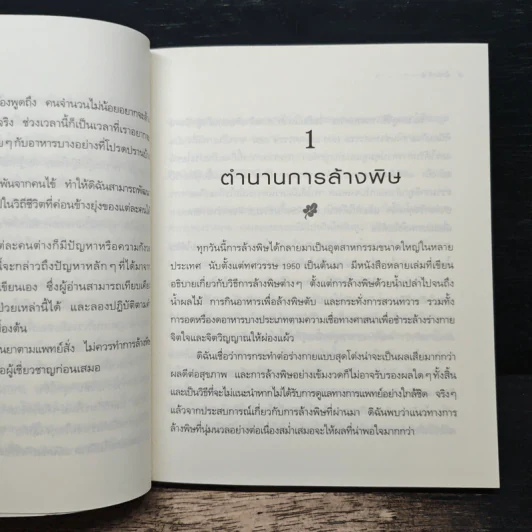 องพูดถึง คนจำนวนไม่น้อยอยากจะล้
จริง ช่วงเวลานี้ก็เป็นเวลาที่เราอยากจ
ยๆกับอาหารบางอย่างที่โปรดปราน
พันจากคนไข้ ทำให้ดิฉันสามารถพัฒน
ปในวิถีชีวิตที่ค่อนข้างยุ่งของแต่ละคนได้
ต่ละคนต่างก็มีปัญหาหรือความกังว
นี้จะกล่าวถึงปัญหาหลักๆที่ได้มาจ
เขียนเอง ซึ่งผู้อ่านสามารถเทียบเคีย
ป่วยเหล่านี้ได้ และลองปฏิบัติตามค
องต้น
นยาตามแพทย์สั่ง ไม่ควรทำการล้างพิ
อผู้เชี่ยวชาญก่อนเสมอ
1
ตำนานการล้างพิษ
ทุกวันนี้การล้างพิษได้กลายมาเป็นอุตสาหกรรมขนาดใหญ่ในหลาย
ประเทศ นับตั้งแต่ทศวรรษ 1960 เป็นต้นมา มีหนังสือหลายเล่มที่เขียน
อธิบายเกี่ยวกับวิธีการล้างพิษต่างๆ ตั้งแต่การล้างพิษด้วยน้ำเปล่าไปจนถึง
น้ำผลไม้ การกินอาหารเพื่อล้างพิษตับ และกระทั่งการสวนทวาร รวมทั้ง
การอดหรืองดอาหารบางประเภทตามความเชื่อทางศาสนาเพื่อชำระล้างร่างกาย
จิตใจและจิตวิญญาณให้ผ่องแผ้ว
ดิฉันเชื่อว่าการกระทำต่อร่างกายแบบสุดโต่งน่าจะเป็นผลเสียมากกว่า
ผลดีต่อสุขภาพ และการล้างพิษอย่างเข้มงวดก็ไม่อาจรับรองผลใดๆทั้งสิ้น
และเป็นวิธีที่จะไม่แนะนำหากไม่ได้รับการดูแลทางการแพทย์อย่างใกล้ชิด จริงๆ
แล้วจากประสบการณ์เกี่ยวกับการล้างพิษที่ผ่านมา ดิฉันพบว่าแนวทางการ
ล้างพิษที่นุ่มนวลอย่างต่อเนื่องสม่ำเสมอจะให้ผลที่น่าพอใจมากกว่า